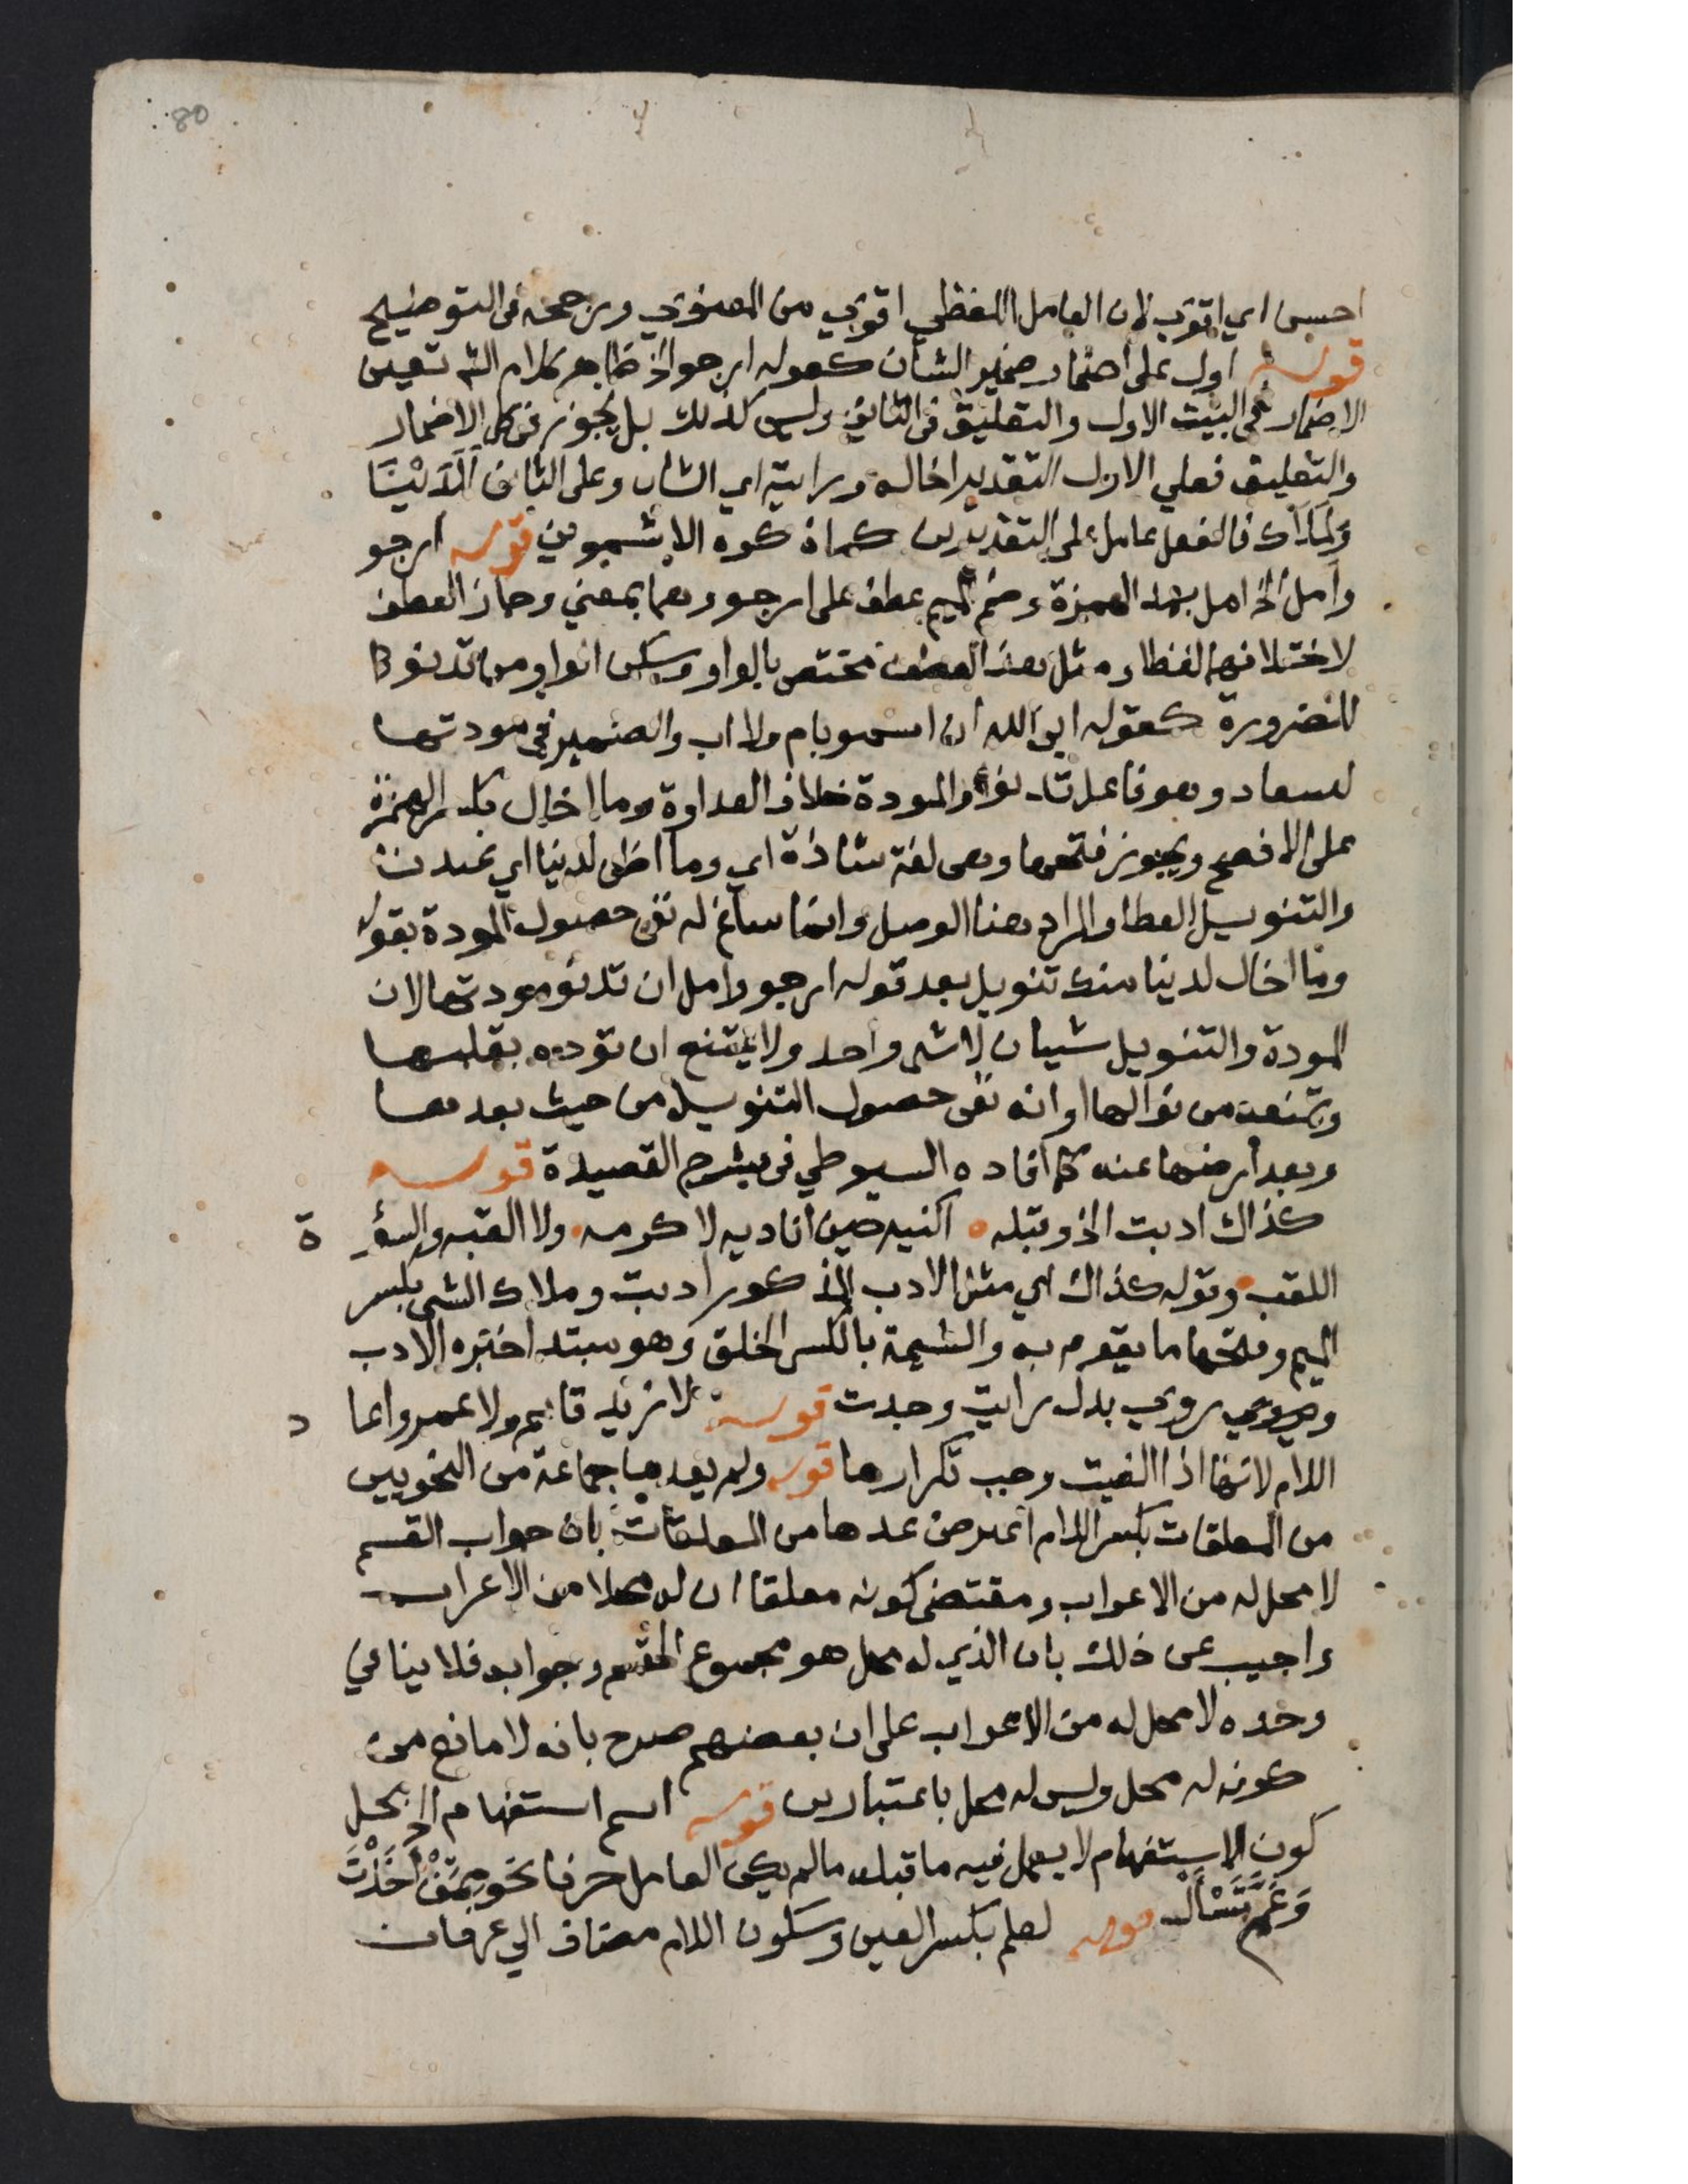 80
احسن اي اقوي لان العامل اللفظي اقوي من المعنوي ورجحه في التوضيح
قوله اول على اضمار ضمير الشان كقوله ارجو الخ ظاهر كلام الش تعين
الاضمار في البيت الاول والتعليق في الثاني وليس كذلك بل يجوز في كل الاضمار
والتعليق فعلي الاول التقدير اخاله ورايته اي الشان وعلى الثاني للدينا
ولملاك فالفعل عامل على التقديرين كما ذكره الاشموني قوله ارجو
وامل الخ امل بمد الهمزة وضم الميم عطف على ارجو وهما بمعني وجاز العطف
لاختلافهما لفظا ومثل هذا العطف مختص بالواو وسكن الواو من تدنو
للضرورة كقوله ابي الله ان اسمو بام ولا اب والضمير في مودتها
لسعاد وهو فاعل تدنو والمودة خلاف العداوة وما اخال بكسر الهمزة
على الافصح ويجوز فتحها وهي لغة شاذة اي وما اظن لدينا اي عندنا
والتنويل العطا والمراد هنا الوصل وانما ساغ له نفي حصول المودة بقوله
وما اخال لدينا منك تنويل بعد قوله ارجو وامل ان تدنو مودتها لان
المودة والتنويل شيان لا شي واحد ولا يمتنع ان توده بقلبها
وتمنعه من نوالها او انه نفي حصول التنويل من حيث بعدها
وبعد ارضها عنه كما افاده السيوطي في شرح القصيدة قوله
كذاك ادبت الخ وقبله اكنيه حين اناديه لاكرمه ولا القبه والسؤ ة
اللقب وقوله كذاك اي مثل الادب المذكور ادبت وملاك الشي بكسر
الميم وفتحها ما يقوم به والشيمة بالكسر الخلق وهو مبتدا خبره الادب
ويروي بدل رايت وجدت قوله لا زيد قايم ولا عمرو اعا د
اللام لانها اذا الغيت وجب تكرارها قوله ولم يعدها جماعة من النحويين
من المعلقات بكسر اللام اعترض عدها من المعلقات بان جواب القسم
لا محل له من الاعراب ومقتضى كونه معلقا ان له محلا من الاعراب
واجيب عن ذلك بان الذي له محل هو مجموع القسم وجوابه فلا ينافي
وحده لا محل له من الاعراب على ان بعضهم صرح بانه لا مانع من
كونه له محل وليس له محل باعتبارين قوله اسم استفهام الخ محل
كون الاستفهام لا يعمل فيه ما قبله ما لم يكن العامل حرفا نحو ممن اخذت
وعم تسأل قوله لعلم بكسر العين وسكون اللام مضاف الي عرفان